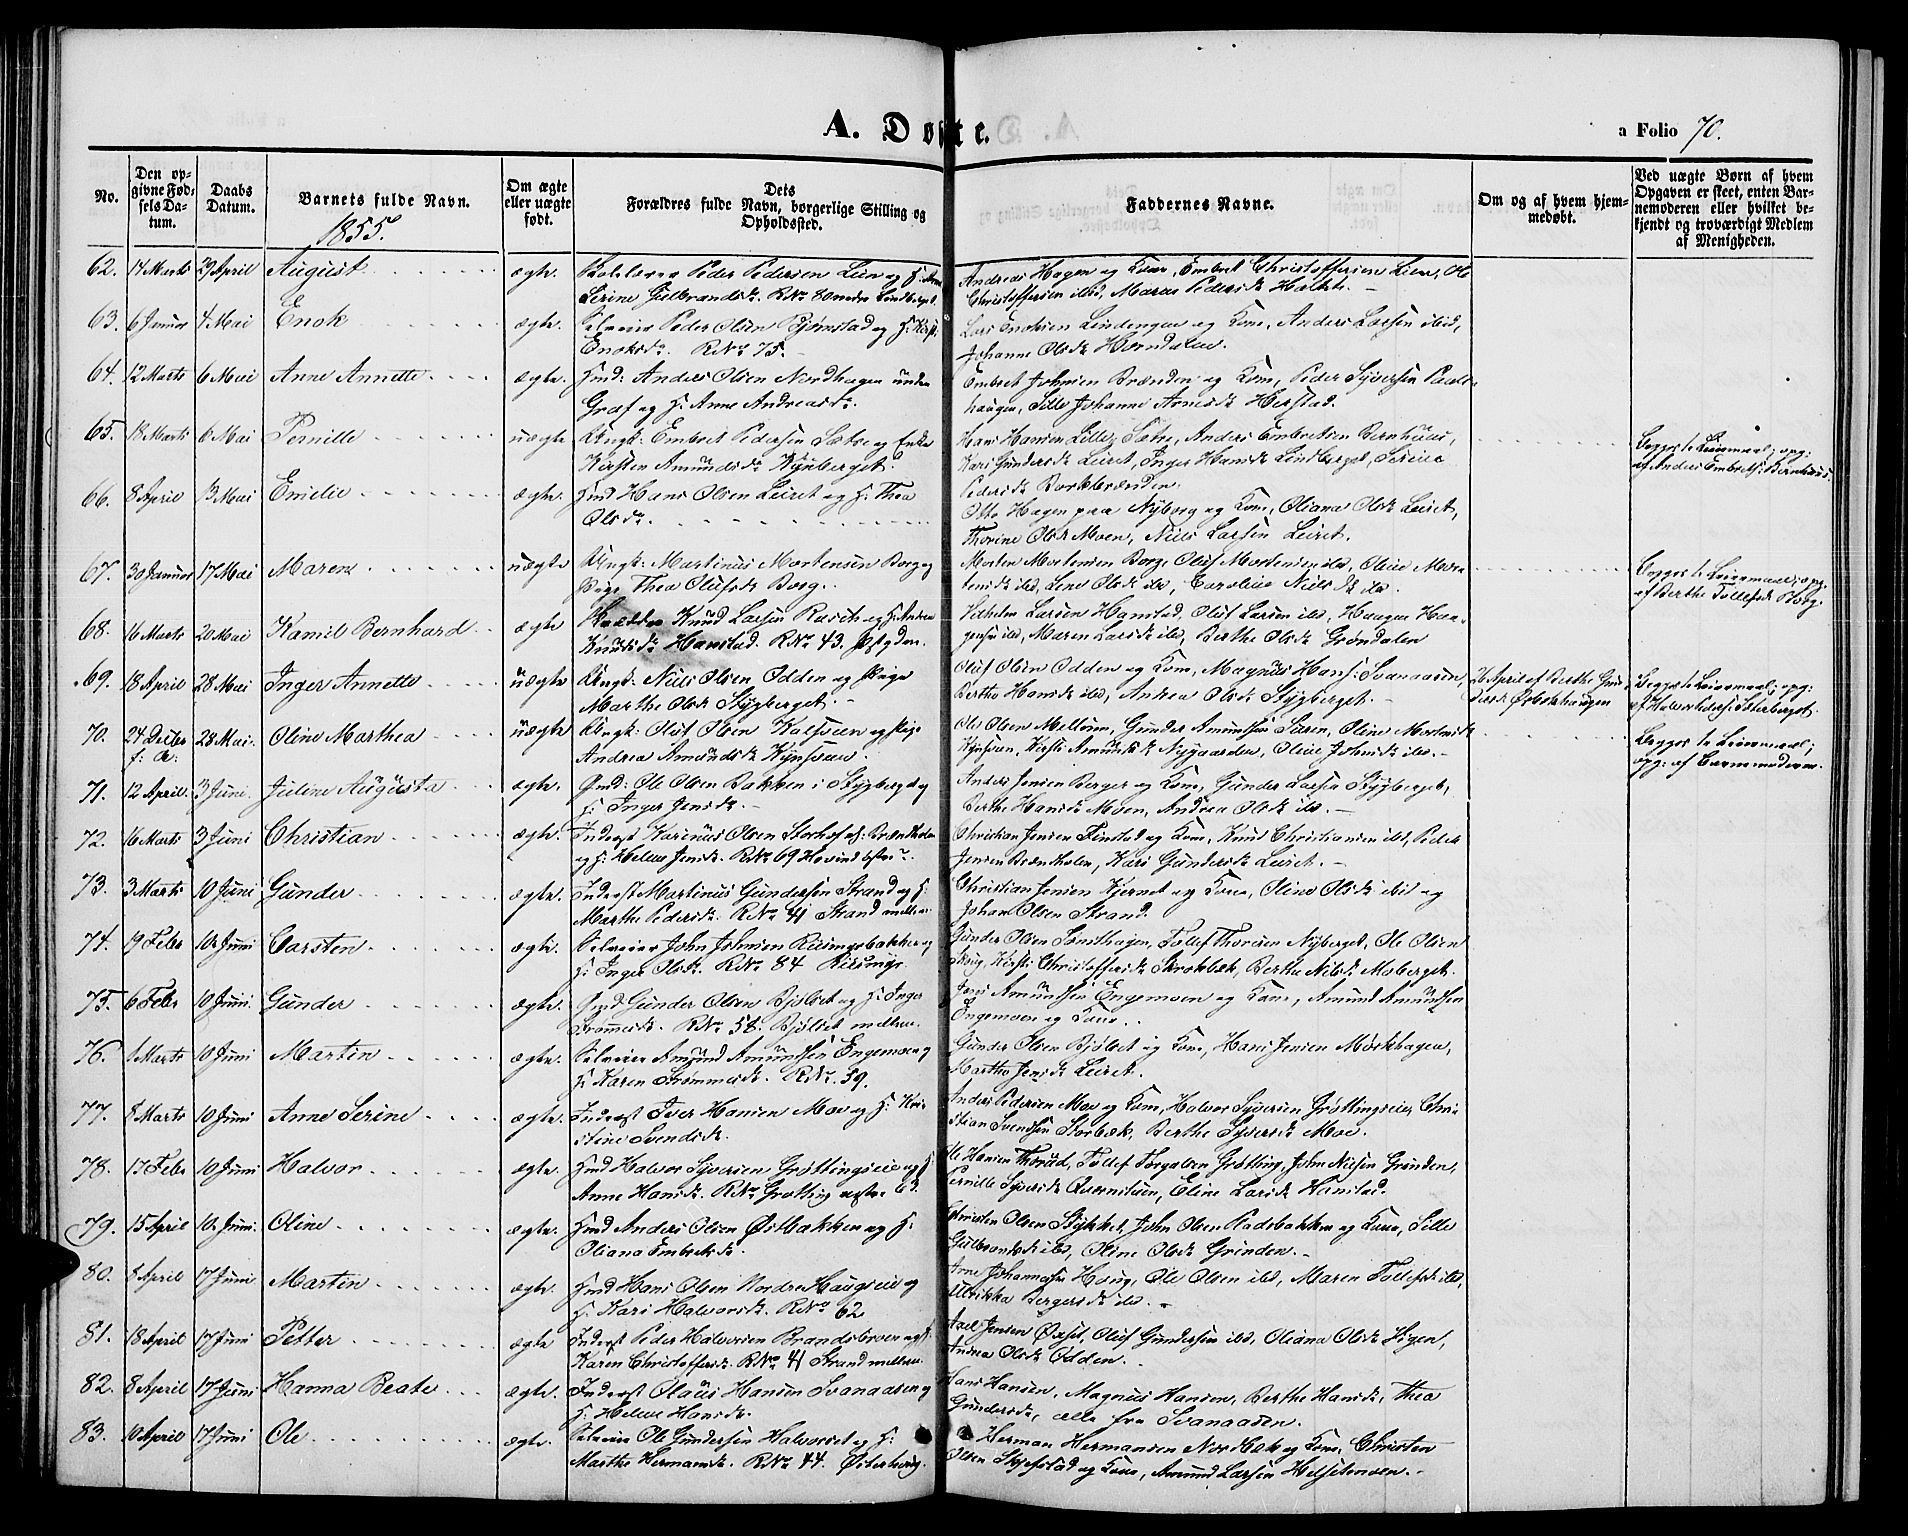 A. Døbte.
a Folio 70.
No.
Den opgivne Fødselsdatum.
Daabs Datum.
Barnets fulde Navn.
Om ægte eller uægte født.
Dets Forældres fulde Navn, borgerlige Stilling og Opholdssted.
Faddernes Navne.
Om og af hvem hjemmedøbt.
Ved uægte Børn af hvem Opgaven er skeet, enten Barnemoderen eller hvilket bekjendt og troværdigt Medlem af Menigheden.
1855.
62. 14 Marts 29 April August ægte. Peder Pedersen Lien og H: Serine Gulbrandsdr. RNr 80 Andreas Hagen og Kone, Embret Christoffersen Lien, Ole
Christoffersen ibid, Maren Pedersdr
63. 6 Januar 4 Mai Enok ægte. Selveier Peder Olsen Bjørnstad og H: Enoksdr. RNr 75. Lars Enoksen Lindengen og Kone, Anders Larsen ibid,
Johanne Olsdr Horndalen.
64. 12 Marts 6 Mai Anne Annette ægte. Hmd: Anders Olsen Nordhagen under
Graf og H: Anne Andreasdr. Embret Johnsen Brænden og Kone, Peder Syversen
haugen, Sille Johanne Arnesdr Herstad.
65. 18 Marts 6 Mai Pernille uægte Ungk: Embret Pedersen Sætre og Enke
Kirsten Amundsdr Kynberget. Hans Hansen Lille Sætre, Anders Embretsen Bernhuus,
Kari Gundersdr Leiret, Inger Hansdr Lindberget, Serine
Pedersdr Begges 1te Leiermaal; opg:
af Anders Embretsen Bernhuus.
66. 8 April 13 Mai Emelie ægte. Hmd Hans Olsen Leiret og H: Thea
Olsdr. Otto Hagen paa Nyborg og Kone, Oliana Olsdr Leiret,
Thorine Olsdr Moen, Niels Larsen Leiret.
67. 30 Januar 17 Mai Maren uægte Ungk: Martinus Mortensen Borg og
Pige Thea Olufsdr Borg. Morten Mortensen Borg, Oluf Mortensen ibd, Oline Mor-
tensdr ibd, Lene Olsdr ibd, Caroline Nielsdr ibd. Begges 1te Leiermaal; opg:
af Berthe Tollefsdr Borg.
68. 16 Marts 20 Mai Kamil Bernhard ægte Knud Larsen og H: Andrea
Knudsdr Hanstad. RNr 43. Vilhelm Larsen Hanstad, Oluf Larsen ibd, Haagen Haa-
gensen ibd, Maren Larsdr ibd, Berthe Olsdr Grøndalen
69. 18 April 28 Mai Inger Annette uægte Ungk: Niels Olsen Odden og Pige
Marthe Olsdr Stygberget. Oluf Olsen Odden og Kone, Magnus Hans: Svanaasen,
Berthe Hansdr ibd, Andrea Olsdr Stygberget. 26 April af Berthe Gun-
dersdr Begges 1te Leiermaal; opg:
af Halvor
70. 24 Decbr f: A: 28 Mai. Oline Marthea uægte Ungk: Oluf Olsen og Pige
Andrea Amundsdr Kynsven. Ole Olsen Mellem, Gunder Amundsen Oline Mortensdr
Kynsven, Kirsti Amundsdr Nygaarden, Oline Johnsdr ibd. Begges 1te Leiermaal;
opg: af Barnemoderen.
71. 12 April. 3 Juni Juline Augusta ægte. Hmd: Ole Olsen Bakken i Stygberget og
H: Inger Jensdr. Anders Jensen Berger og Kone, Gunder Larsen Stygberget,
Berthe Hansdr Moen, Andrea Olsdr ibd.
72. 16 Marts 3 Juni Christian ægte. Inderst Karinus Olsen
og H: Helene Jensdr. RNr 69 Christian Jensen og Kone, Knud Christiansen ibd, Peder
Jensen Brænholen, Kari Gundersdr Leiret.
73. 3 Marts 10 Juni Gunder ægte. Inderst Martinus Gundersen Strand og H:
Marthe Pedersdr. RNr 41 Strand mellem. Christian Jensen Kjernet og Kone, Oline Olsdr ibid og
Johan Olsen Strand.
74. 19 Febr 10 Juni Carsten ægte. Selveier John Johnsen og
H: Inger Olsdr. RNr 84 Gunder Olsen Tollef Thoresen Nyberget, Ole Olsen
Haug, Kirsti Christoffersdr Berthe Nilsdr Moberget.
75. 6 Febr 10 Juni. Gunder ægte. Hmd Gunder Olsen Bjølset og H: Inger
Strømmesdr. RNr 58. Bjølset mellem. Jens Amundsen Engemoen og Kone, Amund Amundsen
Engemoen og Kone.
76. 1 Marts 10 Juni Martin ægte. Selveier Amund Amundsen Engemoen og
H: Karen Strømmesdr. RNr. 59. Gunder Olsen Bjølset og Kone, Hans Jensen Mørkhagen,
Marthe Jensdr Leiret.
77. 8 Marts 10 Juni Anne Serine ægte. Inderst Iver Hansen Moe og H: Kri-
stine Svendsdr. Anders Pedersen Moe og Kone, Halvor Syversen Grøttingseie, Chri-
stian Svendsen Storbæk, Berthe Syversdr Moe.
78. 17 Febr 10 Juni Halvor ægte. Hmd Halvor Syversen Grøttingseie og H:
Anne Hansdr. RNr Grøtting vestre 63. Ole Hansen Thorud, Tollef Torgalsen Grøtting, John Nielsen Grinden,
Pernille Syversdr Qvernstuen, Eline Larsdr Hanstad.
79. 15 April 10 Juni. Oline ægte. Hmd Anders Olsen Østbakken og H:
Oliana Embretsdr. Christen Olsen Stykket, John Olsen Padsbakken og Kone, Sille
Gulbrandsdr ibd, Oline Olsdr Grinden.
80. 8 April 17 Juni Martin ægte. Hmd Hans Olsen Nordre Haugseie og
H: Kari Halvorsdr. RNr 62 Arne Johannesen Haug, Ole Olsen ibd, Maren Tollefsdr ibd,
Ulrikka Bergersdr ibd.
81. 18 April 17 Juni Petter ægte Inderst Peder Halvorsen og H:
Karen Christoffersdr. RNr 41 Strand mellem. Axel Jensen Øxset, Oluf Gundersen ibd, Oliana Olsdr
Andrea Olsdr Odden.
82. 8 April 17 Juni Hanna Beate ægte. Inderst Olaus Hansen Svanaasen og
H: Helene Hansdr. Hans Hansen, Magnus Hansen, Berthe Hansdr, Thea
Gundersdr, alle fra Svanaasen.
83. 10 April 17 Juni Ole ægte. Selveier Ole Gundersen Halvorset og H:
Marthe Hermansdr. RNr 44. Østerhaug. Herman Hermansen Nordbæk og Kone, Christen
Olsen Skjefstad og Kone, Amund Larsen